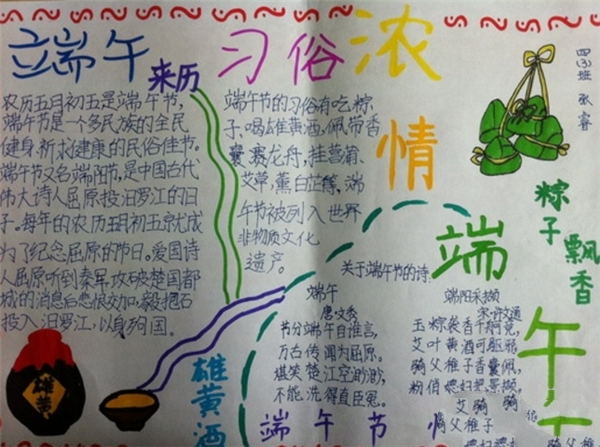 端午
来历
习俗
浓
情
端
午
农历五月初五是端午节,
端午节是一个多民族的全民
健身,祈求健康的民俗佳节。
端午节又名端阳节,是中国古代
伟大诗人屈原投汨罗江的日
子。每年的农历五月初五就成
为了纪念屈原的节日。爱国诗
人屈原听到秦军攻破楚国都
城的消息后悲愤交加,毅然抱石
投入汨罗江,以身殉国。
端午节的习俗有吃粽
子、喝雄黄酒、佩带香
囊、赛龙舟,挂菖蒲、
艾草,薰白芷等,端
午节被列入世界
非物质文化
遗产。
关于端午节的诗:
端午
唐·文秀
节分端午自谁言,
万古传闻为屈原。
堪笑楚江空渺渺,
不能洗得直臣冤。
端阳采撷
玉粽袭香千舸竞,
艾叶黄酒可驱邪。
骑父稚子香囊佩,
粉俏媳妇把景撷。
艾
骑父稚子
四(3)班 张睿
粽子飘香
雄黄
雄黄酒
端午节